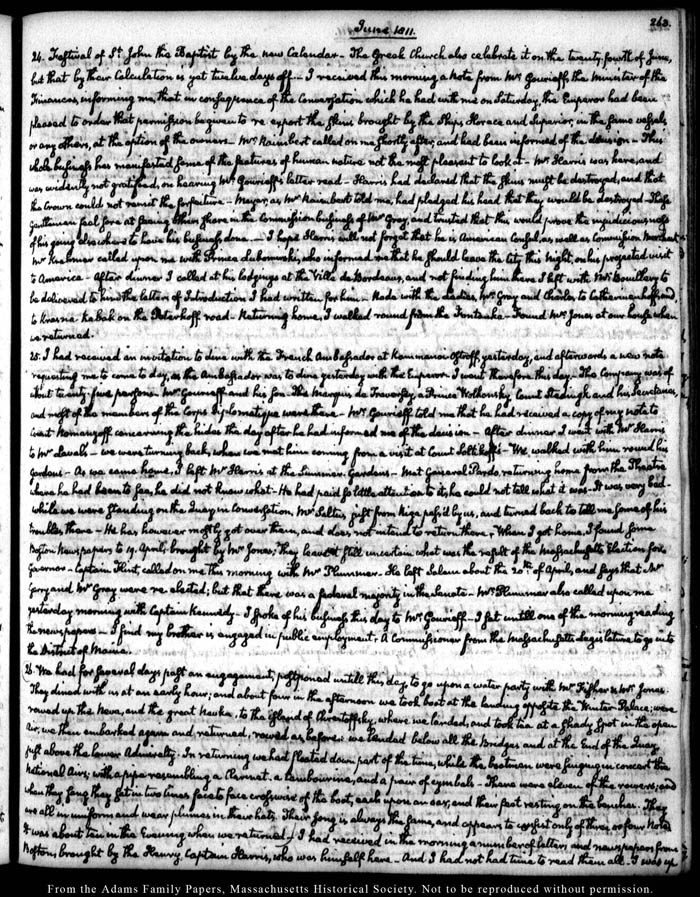 June 1811.
263.
24. Festival of St. John the Baptist by the new Calendar — The Greek Church also celebrate it on the twenty-fourth of June,
but that by their Calculation is yet twelve days off — I received this morning a Note from Mr. Gourieff, the Minister of the
Finances, informing me, that in consequence of the Conversation which he had with me on Saturday, the Emperor had been
pleased to order that permission be given to re export the skins brought by the Ships Horace and Superior, in the same vessels,
or any others, at the option of the owners — Mr. Raimbert called on me shortly after, and had been informed of the decision — This
whole business has manifested some of the features of human nature not the most pleasant to look at — Mr. Harris was here, and
was evidently not gratified, on hearing Mr. Gourieff's letter read — Harris had declared that the skins must be destroyed, and that
the Crown could not remit the forfeiture — Meyer, as Mr. Raimbert told me, had pledged his head that they would be destroyed — These
gentlemen feel sore at seeing their share in the Commission business of Mr. Gray, and trusted that this would prove the injudiciousness
of his going elsewhere to have his business done — I hope Harris will not forget that he is American Consul, as well as Commission Merchant
Mr. Krehmer called upon me with Prince Labomirski, who informed me that he should leave the City this night, on his projected visit
to America — After dinner I called at his lodgings at the Ville de Bordeaux, and not finding him there I left with
to be delivered to him the letters of Introduction I had written for him — Rode with the Ladies, Mr. Gray and Charles, to Catherinenhoff, and
to Krasna Kabak on the Peterhoff road — Returning home, I walked round from the Fontanka — Found Mr. Jones at our house when
we returned.
25. I had received an invitation to dine with the French Ambassador at Kammenoi Ostroff, yesterday, and afterwards a new note
requesting me to come to day, as the Ambassador was to dine yesterday with the Emperor. I went therefore this day — The Company was of
about twenty-five persons. Mr. Gourieff and his son — The Marquis de Traversay, a Prince Wolkonsky, Count Stedingk and his Secretaries,
and most of the members of the Corps Diplomatique were there — Mr. Gourieff told me that he had received a copy of my note to
Count Romanzoff concerning the hides the day after he had informed me of the decision — After dinner I went with Mr. Harris
to Mr. Laval's — we were turning back, when we met him coming from a visit at Count Soltikoff's — We walked with him round his
Gardens — As we came home, I left Mr. Harris at the Summer Gardens — Met General Pardo, returning home from the Theatre
where he had been to see, he did not know what — He had paid so little attention to it, he could not tell what it was — It was very bad —
While we were standing on the Quay in Conversation, Mr. Salters just from Riga pass'd by us, and turned back to tell me some of his
troubles there — He has however mostly got over them, and does not intend to return there — When I got home, I found some
Boston Newspapers to 19. April, brought by Mr. Jones; They leave it still uncertain what was the result of the Massachusetts Election for
Governor — Captain Flint, called on me this morning with Mr. Plummer — He left Salem about the 20th of April, and says that Mr.
Gerry and Mr. Gray were re elected; but that there was a federal majority in the Senate — Mr. Plummer also called upon me
yesterday morning with Captain Kennedy — I spoke of his business this day to Mr. Gourieff — I sat untill one of the morning reading
the newspapers — I find my brother is engaged in public employment, A Commissioner from the Massachusetts Legislature to go into
the District of Maine.
26. We had for several days past an engagement, postponed untill this day to go upon a water party with Mr. Fisher & Mr. Jones.
They dined with us at an early hour; and about four in the afternoon we took boat at the landing opposite the Winter Palace; were
rowed up the Neva, and the great Nevka, to the Island of Chrestoffsky, where we landed, and took tea at a shady spot in the open
air; we then embarked again and returned, rowed as before; we landed below all the Bridges and at the End of the Quay,
just above the lower Admiralty — In returning we had floated down part of the time, while the boatmen were singing in concert their
National Airs; with a pipe resembling a Clarinet, a tambourine, and a pair of cymbals — There were eleven of the rowers; and
when they sang they sat in two lines face to face crosswise of the boat, each upon an oar, and their feet resting on the benches. They
are all in uniform and wear plumes in their hats. Their song is always the same, and appears to consist only of three or four Notes
It was about ten in the Evening when we returned — I had received in the morning a number of letters, and newspapers from
Boston, brought by the Henry, Captain Harris, who was himself here — And I had not had time to read them all — I was up
From the Adams Family Papers, Massachusetts Historical Society. Not to be reproduced without permission.